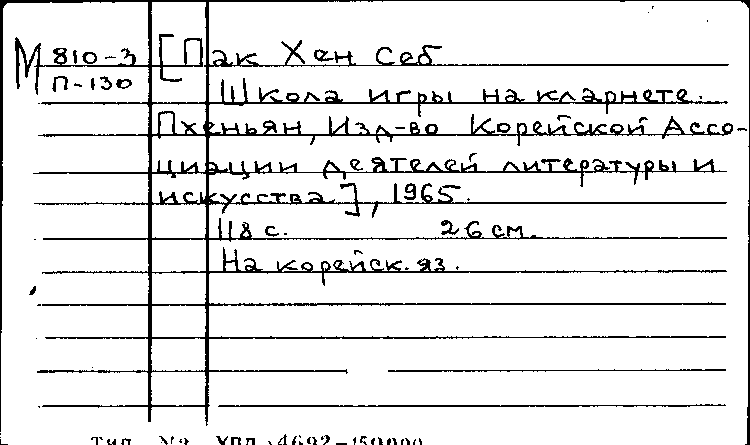 М 810-3 [Пак Хен Себ
П-130
Школа игры на кларнете.
Пхеньян, Изд-во Корейской Ассо-
циации деятелей литературы и
искусства], 1965.
118 с. 26 см.
На корейск. яз.